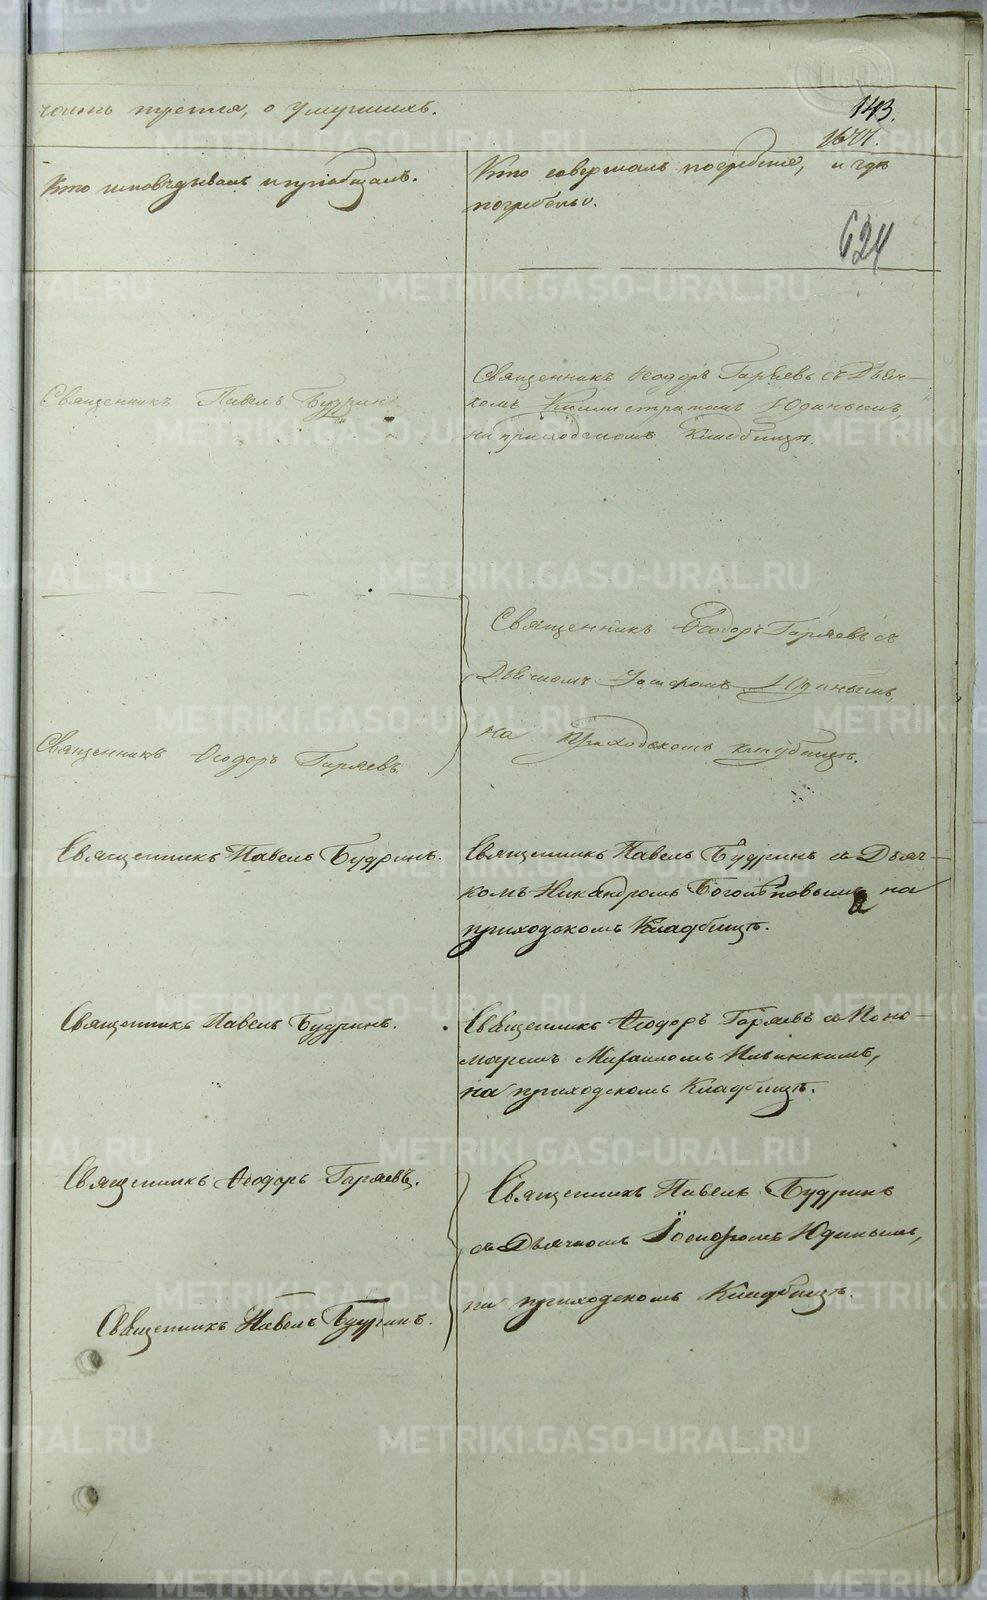 часть третья, о умершихъ.
143.
Кто исповѣдывалъ и пріобщалъ.
Кто совершалъ погребеніе, и гдѣ
погребены.
624
Священникъ Павелъ Будринъ
Священникъ Ѳеодоръ Гаряевъ съ Дьяч-
комъ Юдинымъ,
на приходскомъ Кладбищѣ.
Священникъ Ѳеодоръ Гаряевъ съ
Дьячкомъ Юдинымъ,
на Приходскомъ кладбищѣ.
Священникъ Ѳеодоръ Гаряевъ
Священникъ Павелъ Будринъ.
Священникъ Павелъ Будринъ съ Дьяч-
комъ Никандромъ Боголѣповымъ на
приходскомъ Кладбищѣ.
Священникъ Павелъ Будринъ.
Священникъ Ѳеодоръ Гаряевъ съ Поно-
маремъ Михаиломъ Ильинскимъ,
на приходскомъ Кладбищѣ.
Священникъ Ѳеодоръ Гаряевъ.
Священникъ Павелъ Будринъ
съ Дьячкомъ Іосифомъ Юдинымъ,
на приходскомъ Кладбищѣ.
Священникъ Павелъ Будринъ.
METRIKI.GASO-URAL.RU